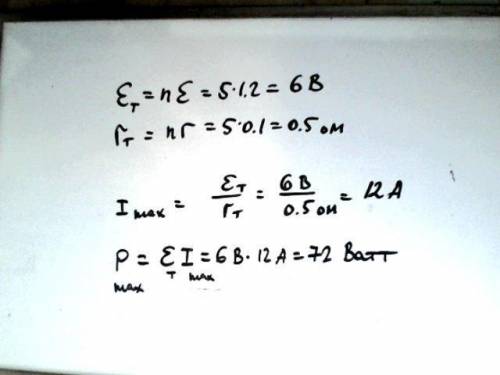 Ɛт = nƐ = 5·1.2 = 6В
rт = nr = 5·0.1 = 0.5 ом
I max = Ɛт/rт = 6В/0.5 ом = 12 А
P max = Ɛт I max = 6В·12А = 72 Ватт